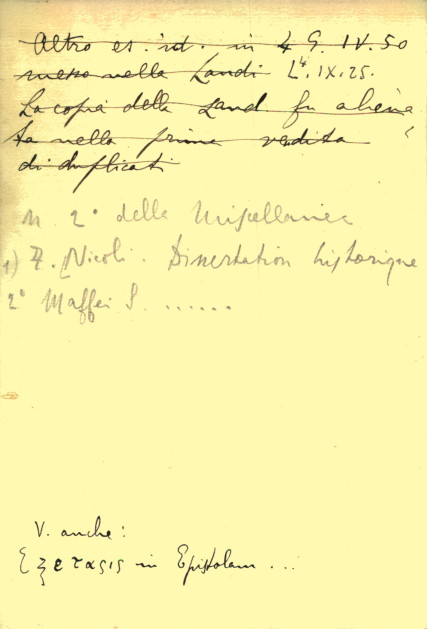 Altro es. id. in 4 G. IV. 50
messo nella Landi L⁴. IX. 25.
La copia della Land. fu aliena
ta nella prima vendita
di duplicati
n. 2° della Miscellanea
1) F. Nicoli. Dissertation historique
2° Maffei S. ......
V. anche:
Εξετασις in Epistolam ...